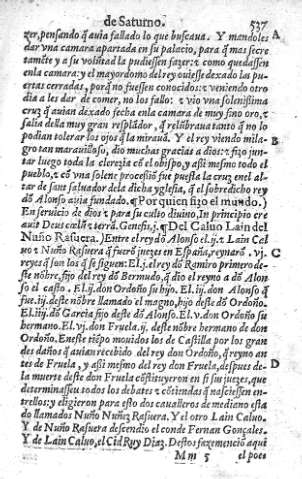 de Saturno. 537
zer, pensando q̃ auia fallado lo que buscaua. Y mandoles A
dar vna camara apartada en su palacio, para q̃ mas secre
tamẽte y a su volũtad la pudiessen fazer: τ como quedassen
enla camara: y el mayordomo del rey ouiesse dexado las pu
ertas cerradas, porq̃ no fuessen conocidos: τ veniendo otro
dia a les dar de comer, no los fallo: τ vio vna solenissima
cruz q̃ auian dexado fecha enla camara de muy fino oro, τ
salia della muy gran resplãdor, q̃ relũbraua tanto q̃ no lo
podian tolerar los ojos q̃ la mirauã. Y el rey viendo mila- B
gro tan marauilloso, dio muchas gracias a dios: τ fizo jun-
tar luego toda la clerezia cõ el obispo, y assi mesmo todo el
pueblo. τ cõ vna solene processiõ fue puesta la cruz enel al-
tar de sant saluador dela dicha yglesia, q̃ el sobredicho rey
dõ Alonso auia fundado. ¶ Por quien fizo el mundo.)
En seruicio de dios τ para su culto diuino, In principio cre
auit Deus cœlũ τ terrã. Genesis.j. ¶ Del Caluo Lain del
Nuño Rasuera.) Entre el rey dõ Alonso el.ij. τ Lain Cal
uo τ Nuño Rasuera q̃ fuerõ juezes en España, reynarõ .vj. C
reyes q̃ son los q̃ se siguen: El.j. el rey dõ Ramiro primero de-
ste nõbre, fijo del rey dõ Bermudo, q̃ dio el reyno a dõ Alon
so el casto. El.ij. don Ordoño su hijo. El.iij. don Alonso q̃
fue.iij. deste nõbre llamado el magno, hijo deste dõ Ordoño.
El.iiij. dõ Garcia fijo deste dõ Alonso. El.v. don Ordoño su
hermano. El.vj. don Fruela .ij. deste nõbre hermano de don
Ordoño. Eneste tiẽpo mouidos los de Castilla por los gran
des daños q̃ auian recebido del rey don Ordoño, q̃ reyno an
tes de Fruela, y assi mesmo del rey don Fruela, despues de- D
la muerte deste don Fruela cõstituyeron en si sus juezes, que
determinassen todos los debates τ cõtiendas q̃ nasciessen en-
trellos: y eligieron para esto dos caualleros de mediano esta
do llamados Nuño Nuñez Rasuera. Y el otro Lain Caluo.
Y de Nuño Rasuera descendio el conde Fernan Gonçales.
Y de Lain Caluo, el Cid Ruy Diaz. Destos faze mencio aqui
Mm 5 el poes